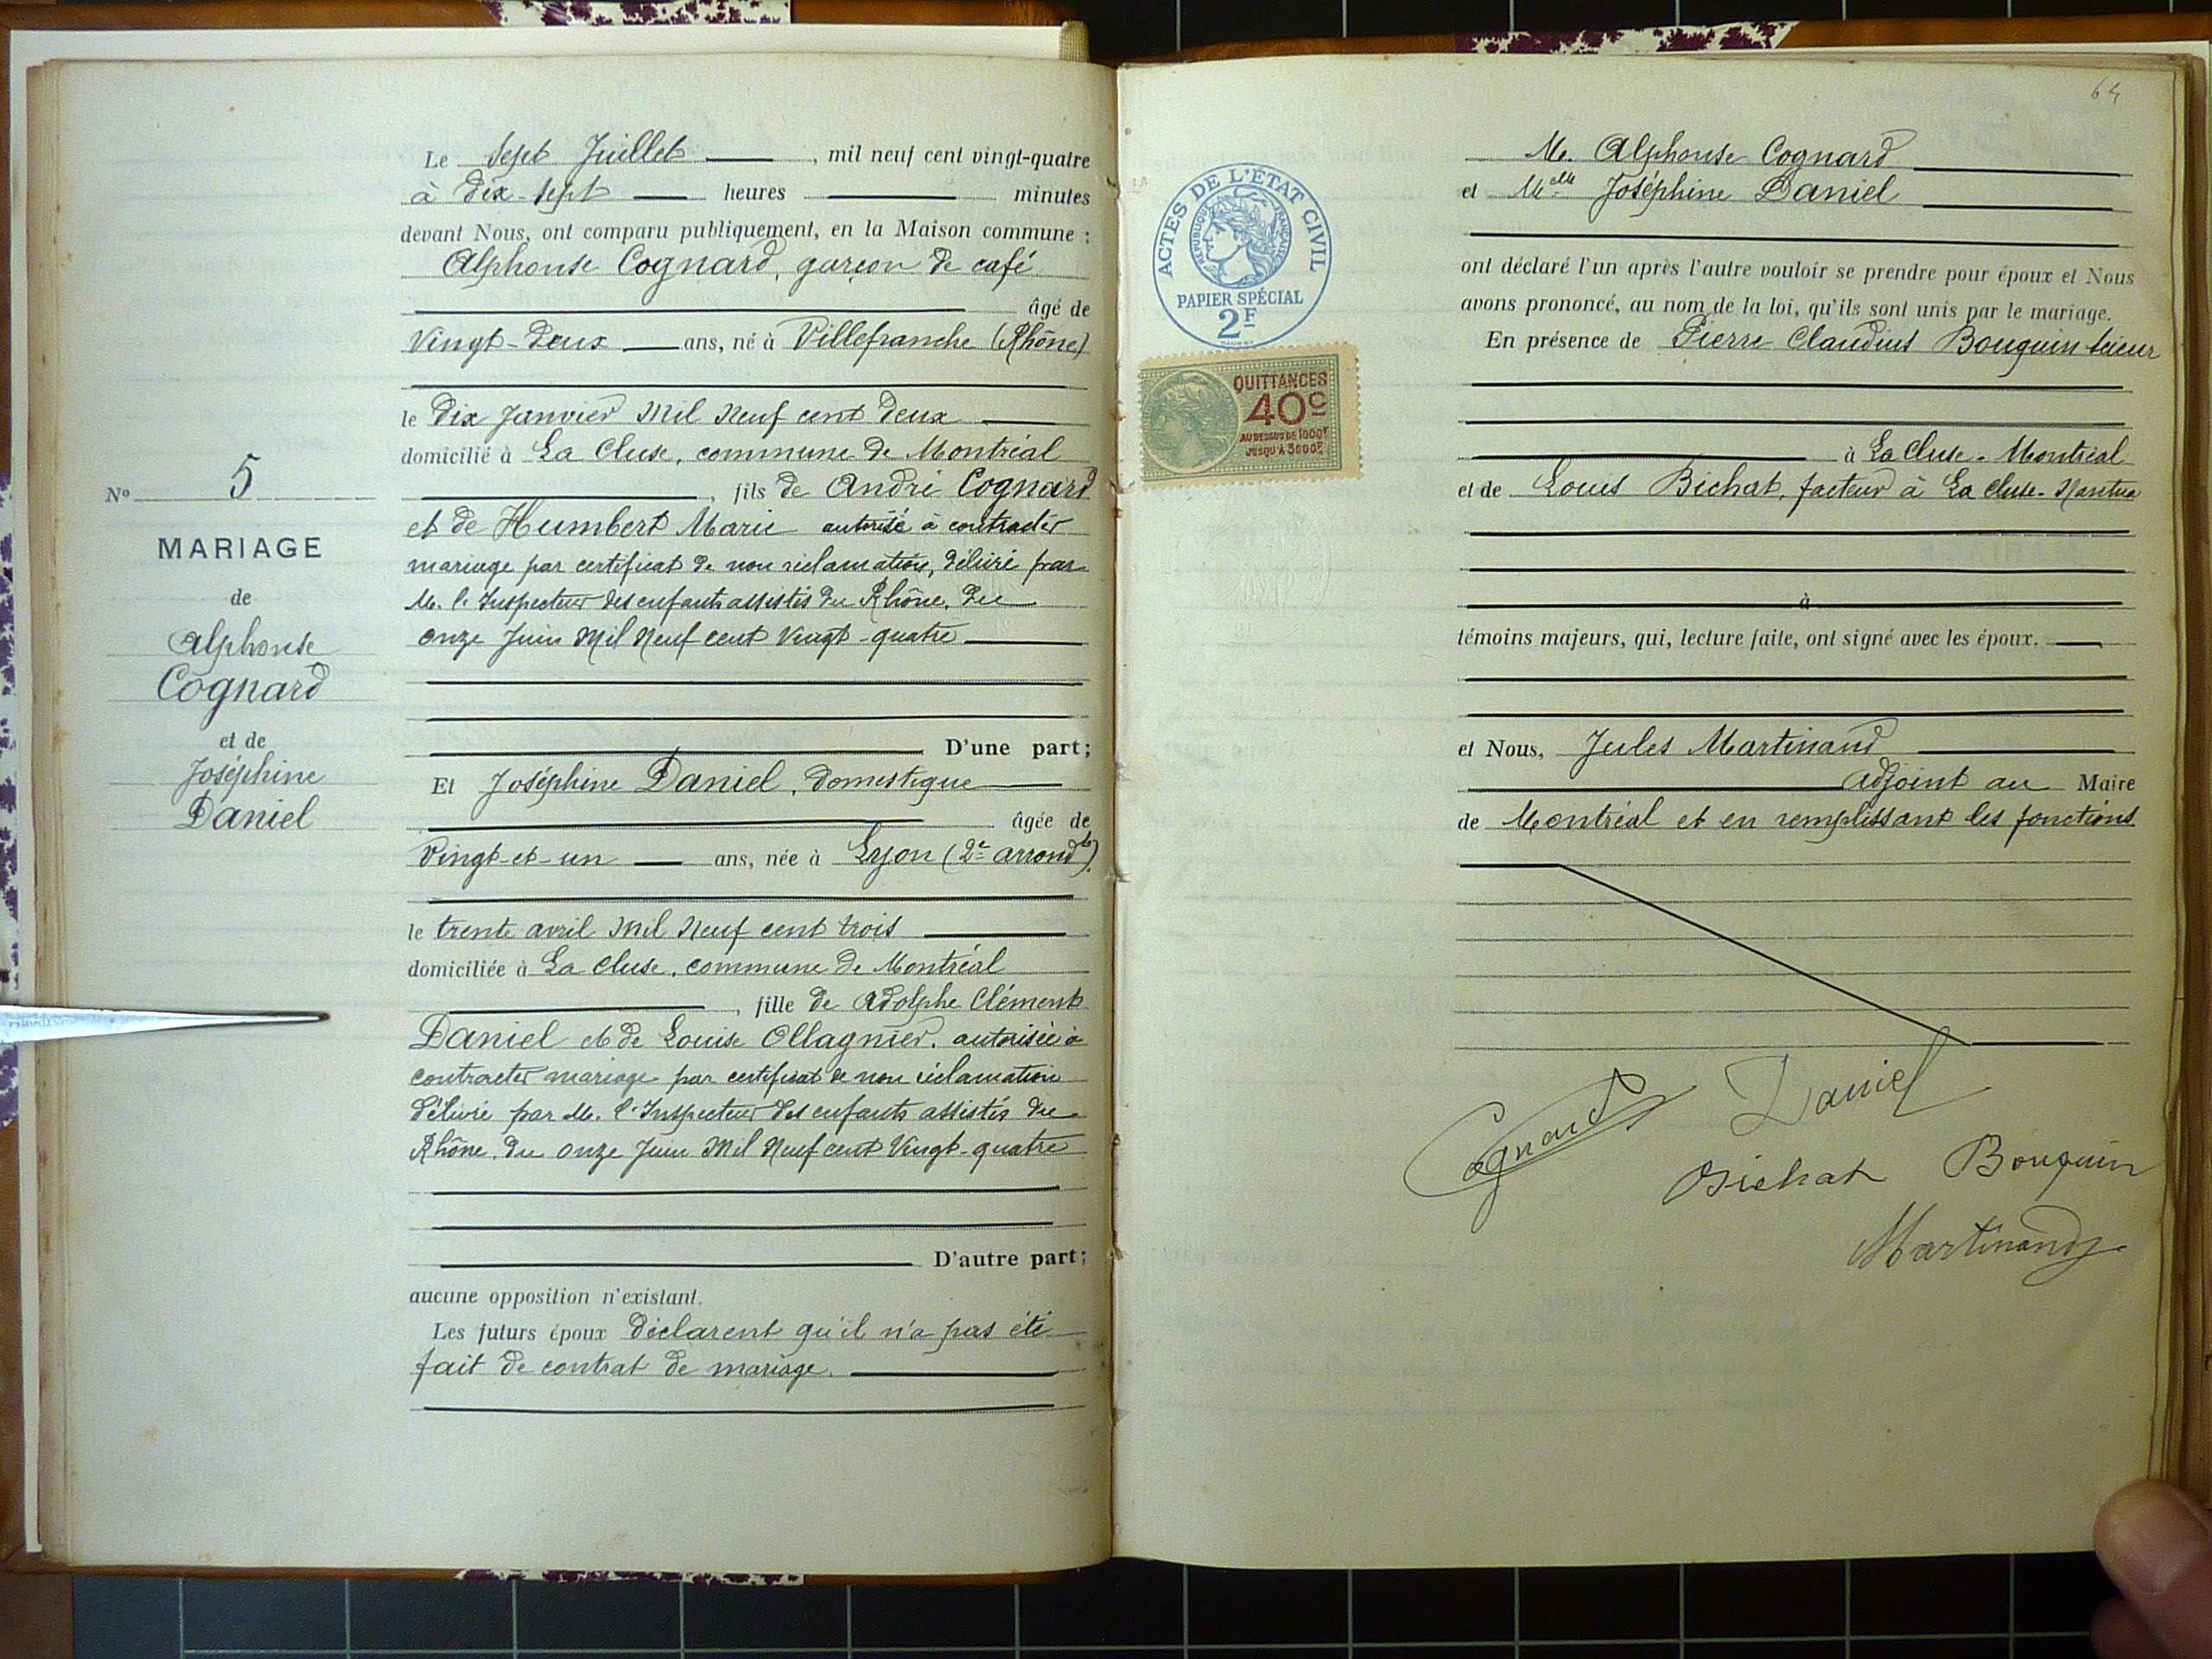 Le Sept Juillet, mil neuf cent vingt-quatre
à dix-sept heures minutes
devant Nous, ont comparu publiquement, en la Maison commune :
Alphonse Cognard, garçon de café
âgé de
Vingt-deux ans, né à Villefranche (Rhône)
le dix Janvier Mil Neuf cent deux
domicilié à La Cluse, commune de Montréal
, fils de André Cognard
et de Humbert Marie autorisé à contracter
mariage par certificat de non réclamation, délivré par
M. l'Inspecteur des enfants assistés du Rhône, du
onze Juin Mil Neuf cent Vingt-quatre
D'une part;
Et Joséphine Daniel, domestique
âgée de
Vingt-et-un ans, née à Lyon (2e arrondt).
le trente avril Mil Neuf cent trois
domiciliée à La Cluse, commune de Montréal
, fille de Adolphe Clément
Daniel et de Louise Ollagnier, autorisée à
contracter mariage par certificat de non réclamation
délivré par M. l'Inspecteur des enfants assistés du
Rhône, du onze Juin Mil Neuf cent Vingt-quatre
D'autre part;
aucune opposition n'existant.
Les futurs époux déclarent qu'il n'a pas été
fait de contrat de mariage.
No 5
MARIAGE
de
Alphonse
Cognard
et de
Joséphine
Daniel
64
ACTES DE L'ÉTAT CIVIL
RÉPUBLIQUE FRANÇAISE
PAPIER SPÉCIAL
2F
QUITTANCES
40c
AU DESSUS DE 1000F
JUSQU'A 3000F
M. Alphonse Cognard
et Melle Joséphine Daniel
ont déclaré l'un après l'autre vouloir se prendre pour époux et Nous
avons prononcé, au nom de la loi, qu'ils sont unis par le mariage.
En présence de Pierre Claudius Bouquin scieur
à La Cluse-Montréal
et de Louis Bichat, facteur à La Cluse-Nantua
à
témoins majeurs, qui, lecture faite, ont signé avec les époux.
et Nous, Jules Martinand
adjoint au Maire
de Montréal et en remplissant les fonctions
Cognard Daniel
Bichat Bouquin
Martinand